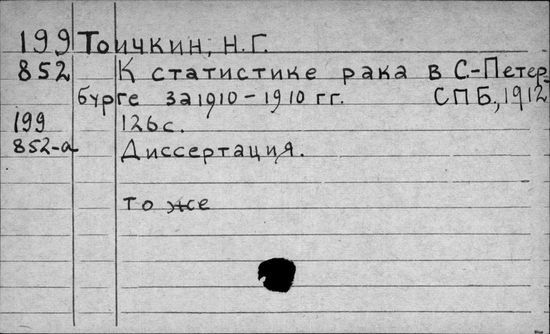 199 Тоичкин, Н.Г.
852 К статистике рака в С.-Петер-
бурге за 1910-1910 гг. СПБ., 1912.
199 126 с.
852-а Диссертация.
то же